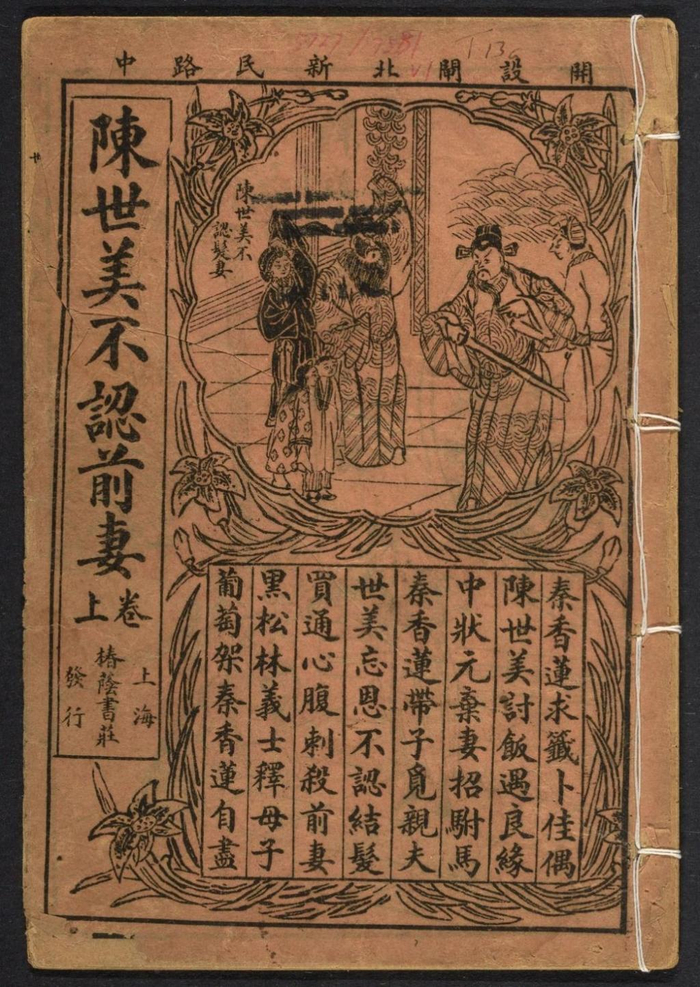 開設閘北新民路中
陳世美不認前妻
卷上
上海
椿蔭書莊
發行
陳世美不
認髮妻
秦香蓮求籤卜佳偶
陳世美討飯遇良緣
中狀元棄妻招駙馬
秦香蓮帶子覓親夫
世美忘恩不認結髮
買通心腹刺殺前妻
黑松林義士釋母子
葡萄架秦香蓮自盡